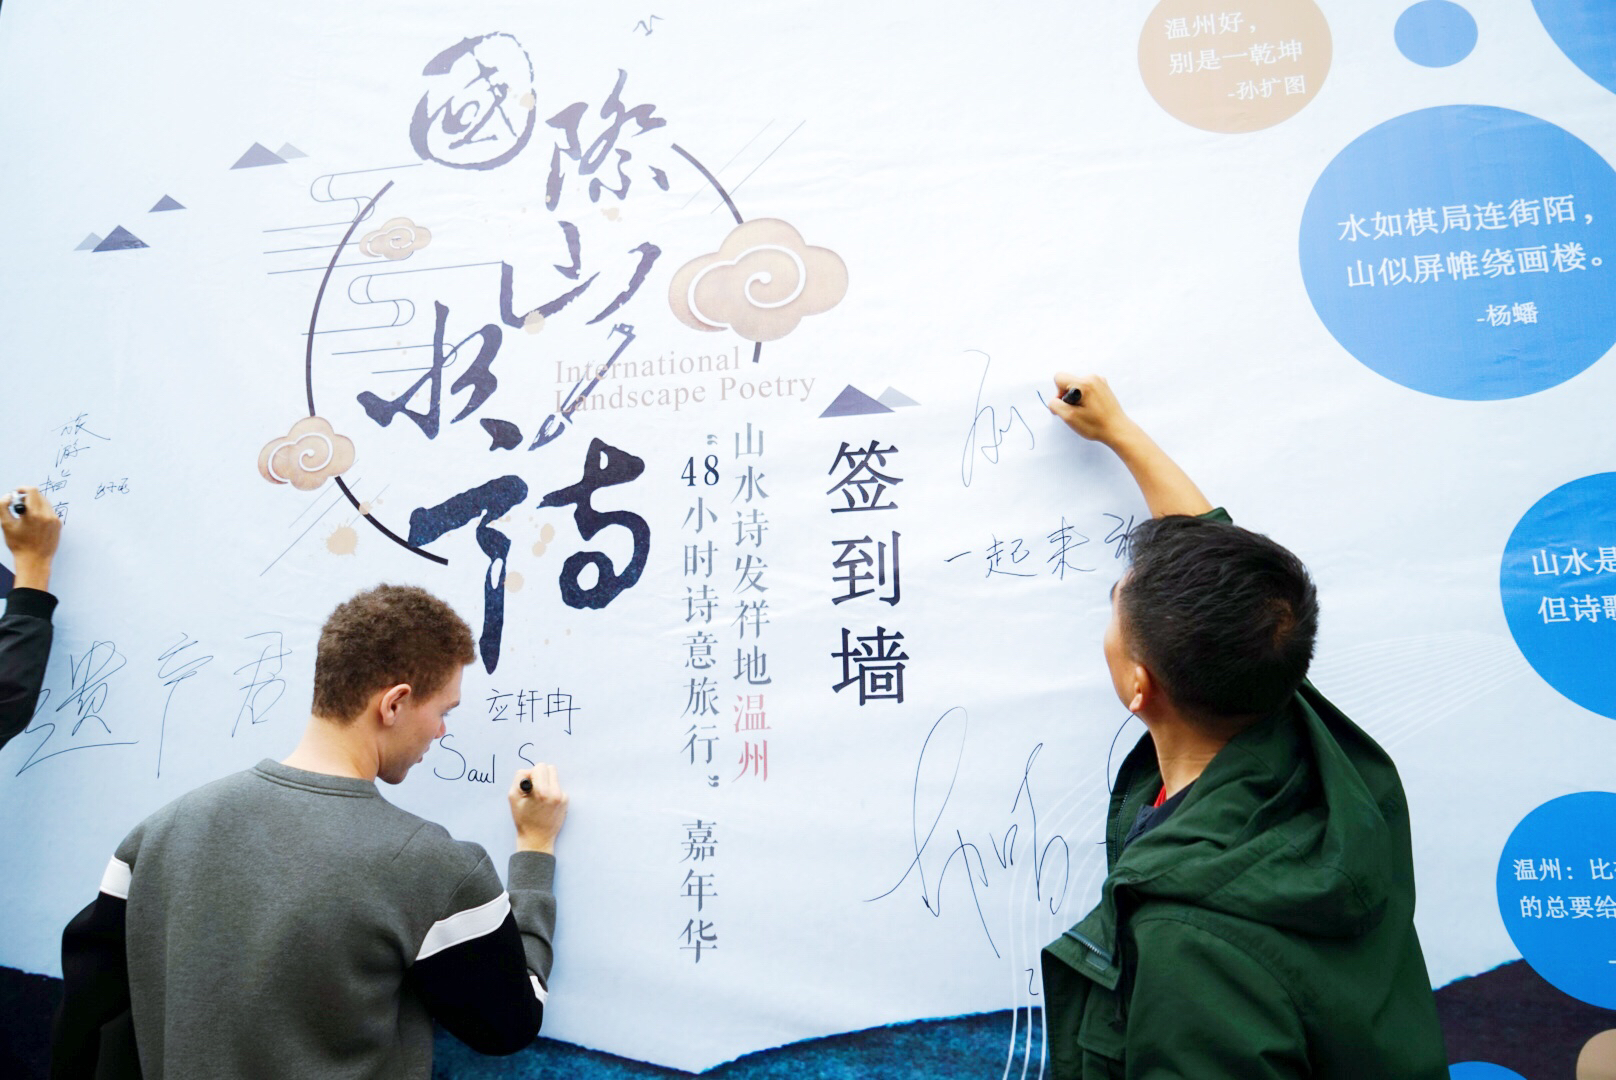 國際
山水
詩
International
Landscape Poetry
山水诗发祥地温州
“48小时诗意旅行”嘉年华
签到墙
温州好，
别是一乾坤
-孙扩图
水如棋局连街陌，
山似屏帷绕画楼。
-杨蟠
山水是
但诗歌
温州：比
的总要给
旅
游
指
南
遗产君
应轩冉
Saul S
一起来